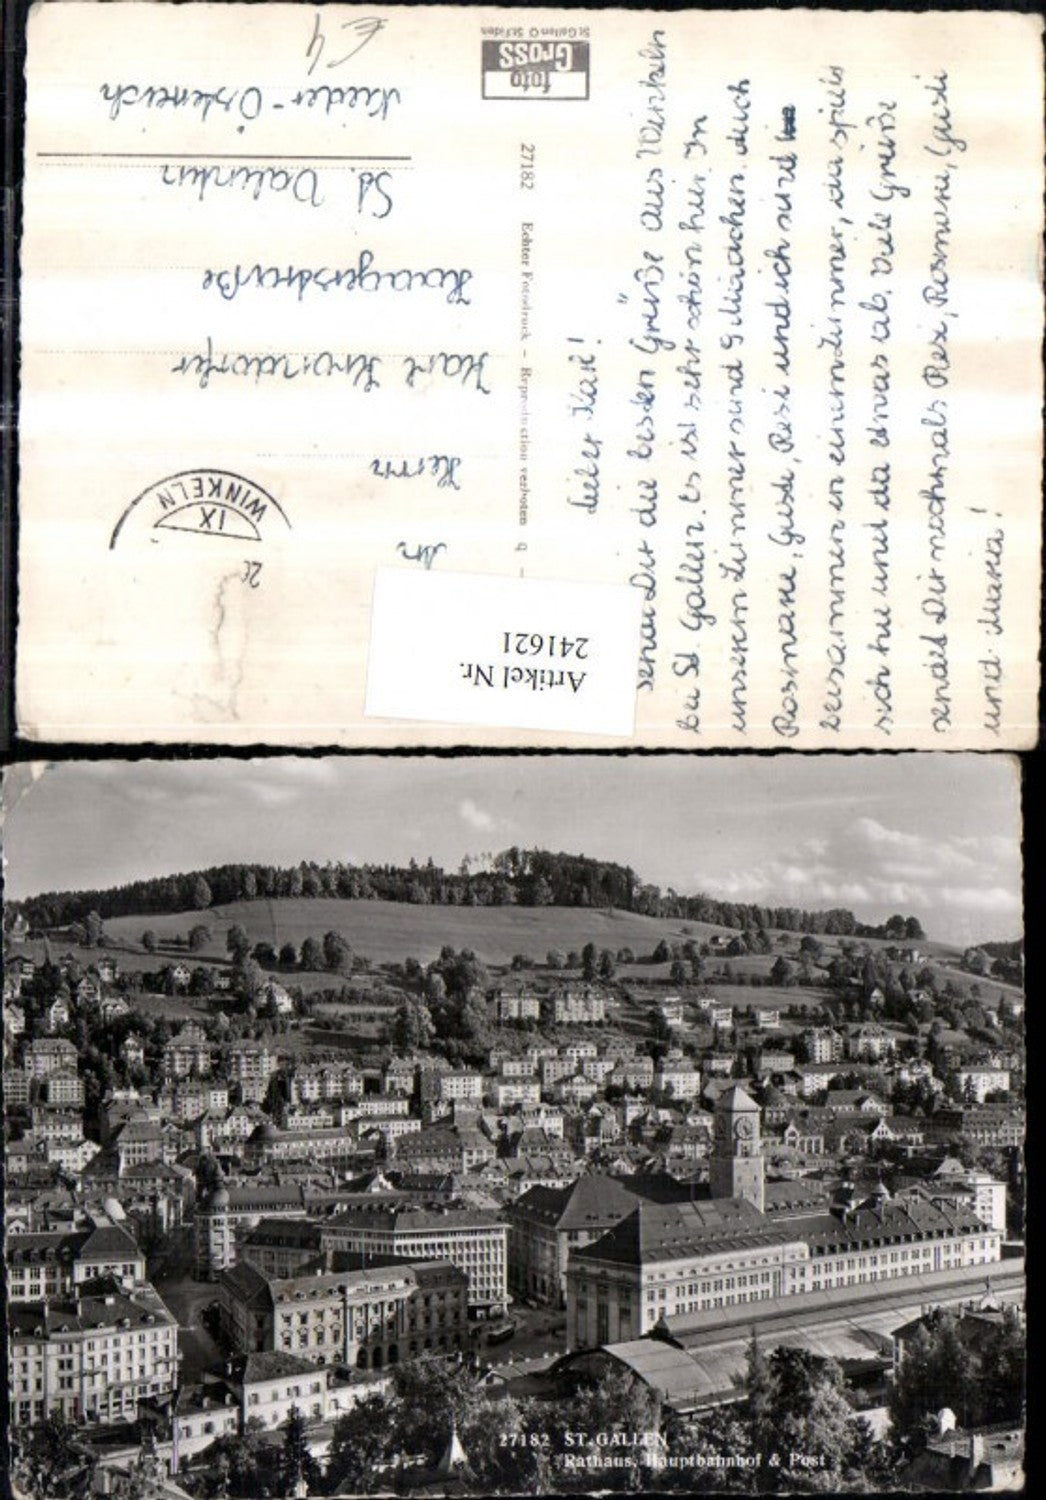 Lieber Karl!
Sende Dir die besten Grüße aus Winkeln
bei St. Gallen. Es ist sehr schön hier. In
unserem Zimmer sind 9 Mädchen. Auch
Rosmarie, Gusti, Resi und ich sind
beisammen in einem Zimmer, da spielt
sich hie und da etwas ab. Viele Grüße
sendet Dir nochmals Resi, Rosmarie, Gusti
und Maria!
foto
Gross
St Gallen O St.Fiden
27182 Echter Fotodruck – Reproduction verboten q –
€ 4
WINKELN
IX
An
Herrn
Karl Krondorfer
Haagerstraße
St. Valentin
Nieder-Österreich
Artikel Nr.
241621
27182 ST. GALLEN
Rathaus, Hauptbahnhof & Post